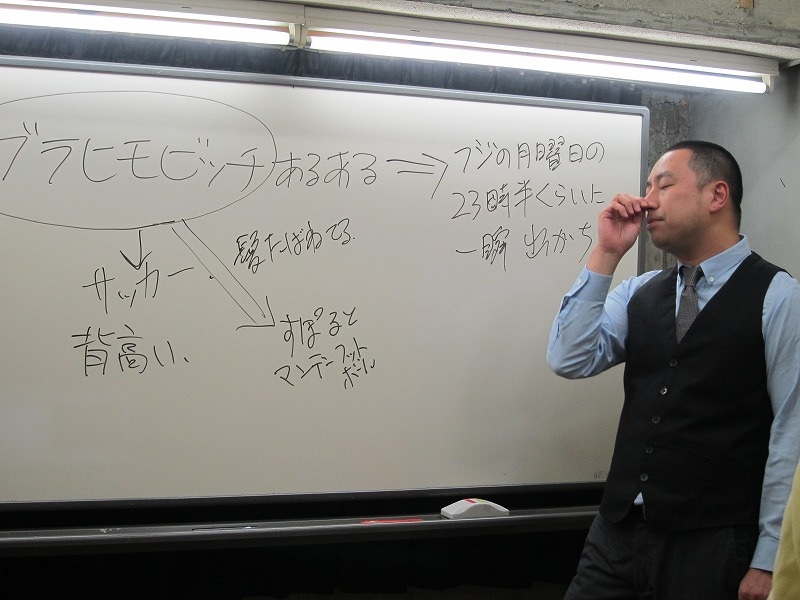 ブラヒモビッチあるある ⇒ フジの月曜日の
23時半くらいに
一瞬 出がち
サッカー
背高い、
髪たばねてる.
すぽると
マンデーフット
ボール